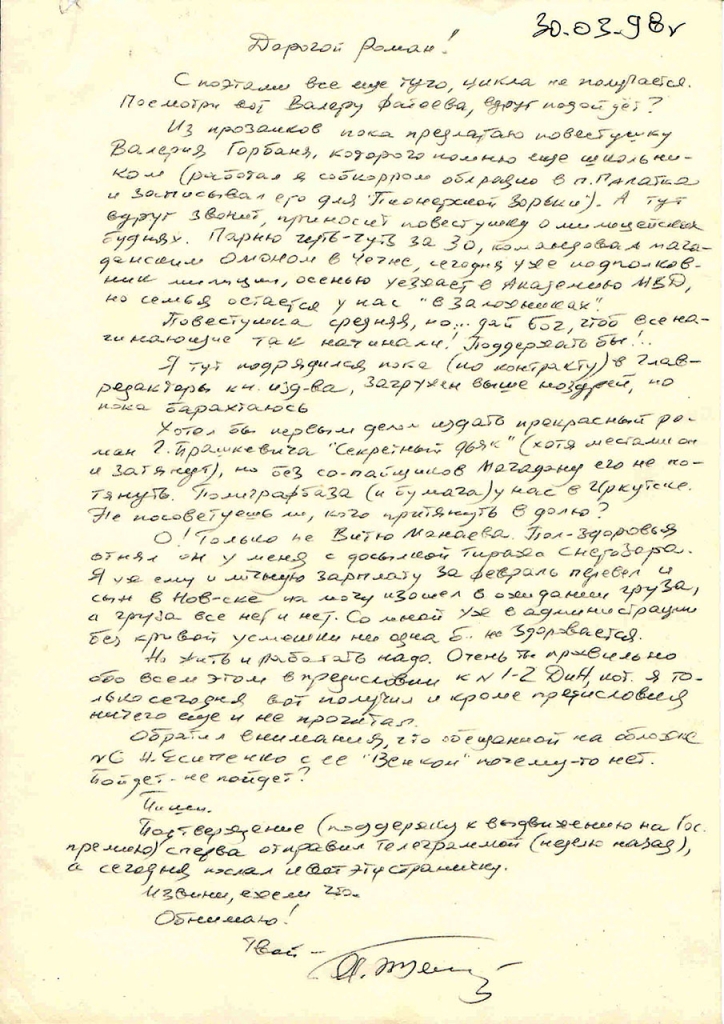 30.03.98 г
Дорогой Роман!
С поэтами все еще туго, цикла не получается.
Посмотри вот Валеру Фатеева, вдруг подойдёт?
Из прозаиков пока предлагаю повестушку
Валерия Горбаня, которого помню еще школьни-
ком (работал я собкорром облрадио в п. Палатка
и записывал его для "Пионерской Зорьки"). А тут
вдруг звонит, приносит повестушку о милицейских
буднях. Парню чуть-чуть за 30, командовал мага-
данским Омоном в Чечне, сегодня уже подполков-
ник милиции, осенью уезжает в Академию МВД,
но семья остается у нас "в заложниках".
Повестушка средняя, но... дай бог, чтоб все на-
чинающие так начинали! Поддержать бы!..
Я тут подрядился пока (по контракту) в глав-
редакторы кн. изд-ва, загружен выше ноздрей, но
пока барахтаюсь
Хотел бы первым делом издать прекрасный ро-
ман Г. Прашкевича "Секретный дьяк" (хотя местами он
и затянут), но без со-пайщиков Магадану его не по-
тянуть. Полиграфбаза (и бумага) у нас в Иркутске.
Не посоветуешь ли, кого притянуть в долю?
О! Только не Витю Мамаева. Пол-здоровья
отнял он у меня с досылкой тиража Снегозора.
Я уж ему и личную зарплату за февраль перевел и
сын в Нов-ске на мочу изошел в ожидании груза,
а груза все нет и нет. Со мной уже в администрации
без кривой усмешки ни одна б.. не здоровается.
Но жить и работать надо. Очень ты правильно
обо всем этом в предисловии к № 1-2 ДиН, кот. я то-
лько сегодня вот получил и кроме предисловия
ничего еще и не прочитал.
Обратил внимания, что обещанной на обложке
Н. Есипенко с ее "Венком" почему-то нет.
Пойдет - не пойдет?
Пиши.
Подтверждение (поддержку к выдвижению на Гос.
премию) сперва отправил телеграммой (неделю назад),
а сегодня послал и вот эту страничку.
Извини, ежели что.
Обнимаю!
Твой -